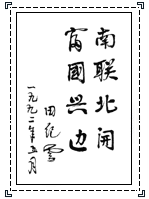 南联北开
富国兴边
田纪云
一九九二年五月